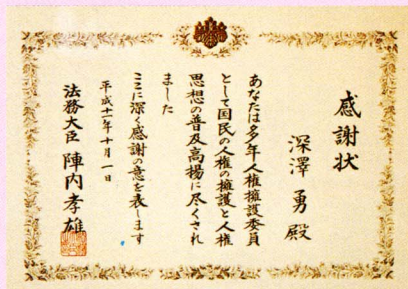 感謝状
深澤勇殿
あなたは多年人権擁護委員
として国民の人権の擁護と人権
思想の普及高揚に尽くされ
ました
ここに深く感謝の意を表します
平成十一年十月一日
法務大臣 陣内孝雄